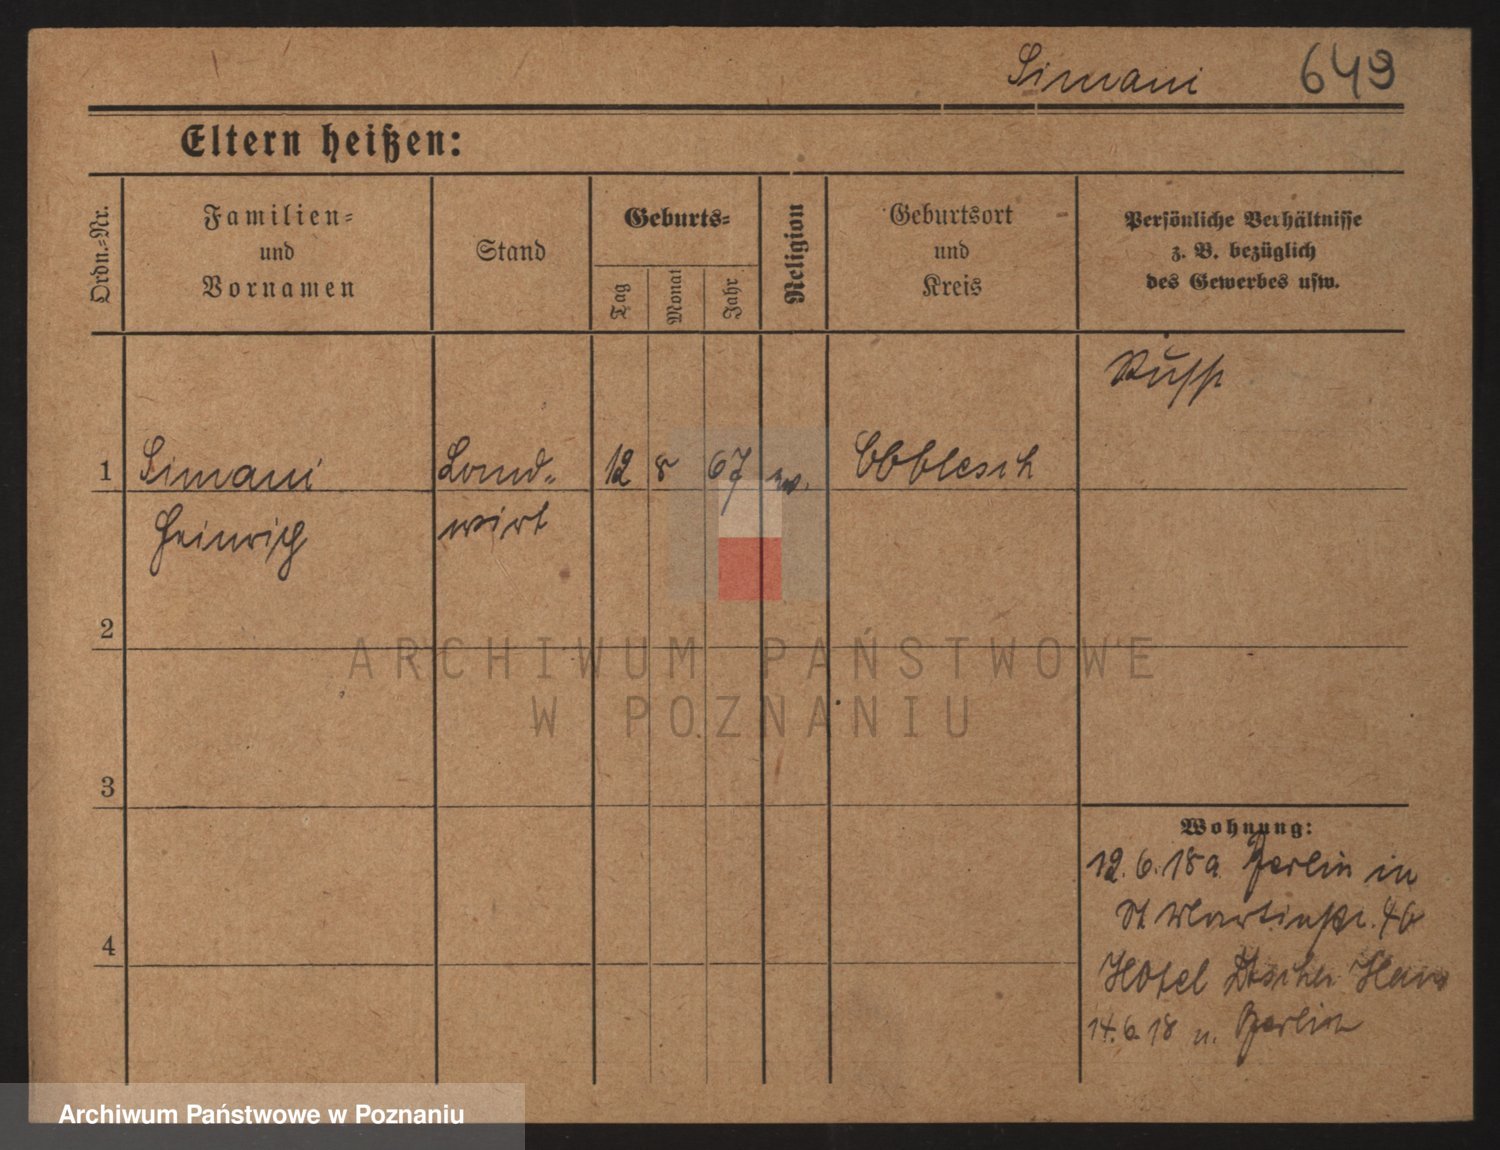 Simani 649
Eltern heißen:
Ordn.-Nr.
Familien-
und
Vornamen
Stand
Geburts-
Tag
Monat
Jahr
Religion
Geburtsort
und
Kreis
Persönliche Verhältnisse
z. B. bezüglich
des Gewerbes usw.
Russ
1 Simani Land- 12 8 67 ev.
Heinrich wirt
2
3
4
Wohnung:
12.6.18 a Berlin in
St Martinstr. 40
Hotel Dtscher Haus
14.6.18 n. Berlin
ARCHIWUM PAŃSTWOWE
W POZNANIU
Archiwum Państwowe w Poznaniu